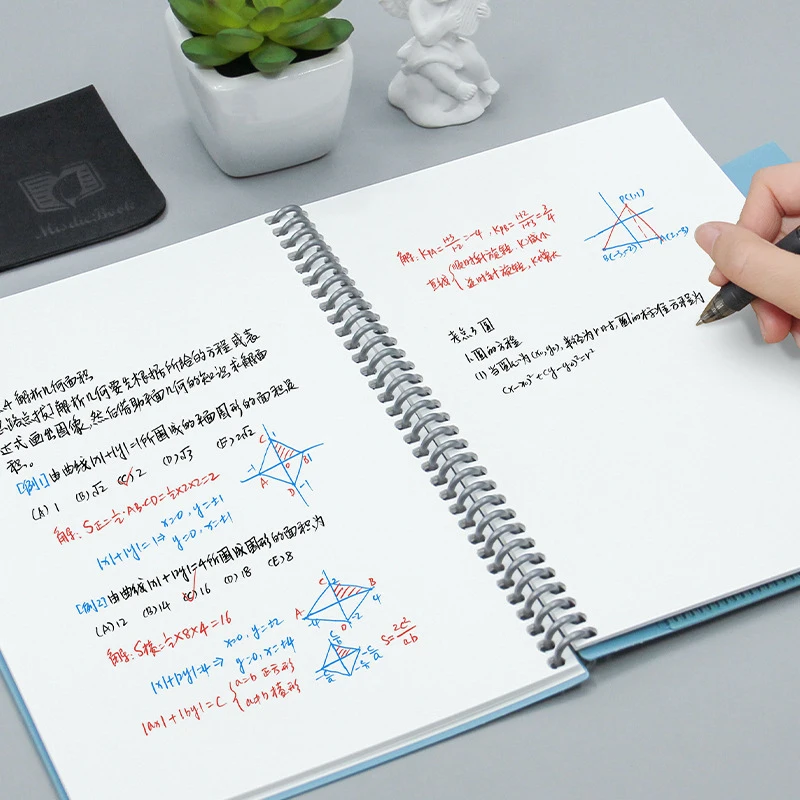 4 解析几何面积
思路点拨]解析几何要先根据所给的方程或表
达式画出图像,然后借助平面几何的知识求解面
积。
[例1]由曲线|x|+|y|=1所围成的平面图形的面积是
(A) 1 (B) √2 (C) 2 (D) √3 (E) 2√2
解: S正=½·AB·CD=½×2×2=2
|x|+|y|=1⇒ x=0, y=±1
y=0, x=±1
C 1
-1 A O B 1
D -1
[例2]由曲线|x|+|2y|=4所围成图形的面积为
(A) 12 (B) 14 (C) 16 (D) 18 (E) 8
解: S棱=½×8×4=16
|x|+|2y|=4⇒ x=0, y=±2
y=0, x=±4
C 2 B
A -4 4
D -2
|ax|+|by|=C { a=b 正方形
a≠b 棱形
S=2c²/ab
解: KPA=(1+3)/(1-2)=-4, KPB=(1+2)/(1+3)=3/4
直线 { 顺时针旋转, K减小
逆时针旋转, K增大
P(1,1)
B(-3,-2) A(2,-3)
考点3 圆
1.圆的方程
(1) 当圆心为(x₀,y₀), 半径为r时,圆的标准方程为
(x-x₀)²+(y-y₀)²=r²